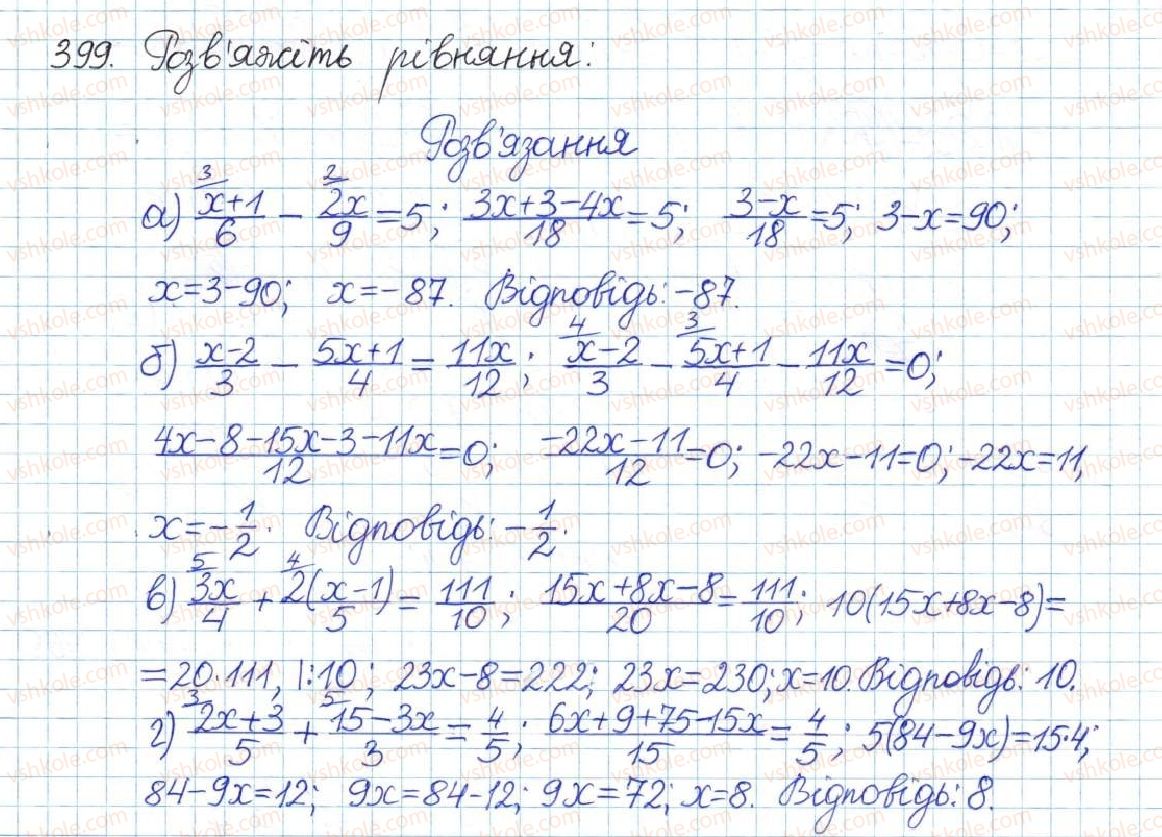 399. Розв'яжіть рівняння:
Розв'язання
а) ³/(x+1)/6 − ²/2x/9 = 5; (3x+3−4x)/18 = 5; (3−x)/18 = 5; 3−x=90;
x=3−90; x=−87. Відповідь: −87.
б) (x−2)/3 − (5x+1)/4 = 11x/12; ⁴/(x−2)/3 − ³/(5x+1)/4 − 11x/12 = 0;
(4x−8−15x−3−11x)/12 = 0; (−22x−11)/12 = 0; −22x−11=0; −22x=11,
x=−1/2. Відповідь: −1/2.
в) ⁵/3x/4 + ⁴/2(x−1)/5 = 111/10; (15x+8x−8)/20 = 111/10; 10(15x+8x−8)=
=20·111, |:10; 23x−8=222; 23x=230; x=10. Відповідь: 10.
г) ³/(2x+3)/5 + ⁵/(15−3x)/3 = 4/5; (6x+9+75−15x)/15 = 4/5; 5(84−9x)=15·4;
84−9x=12; 9x=84−12; 9x=72; x=8. Відповідь: 8.
vshkole.com